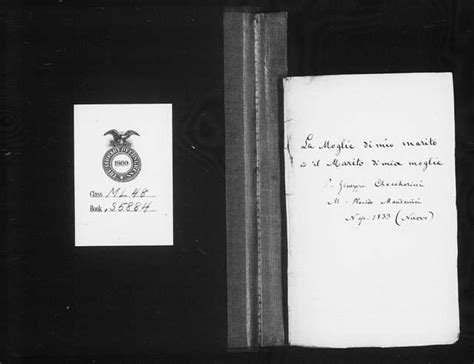 LIBRARY OF CONGRESS
1800
Class ML 48
Book .S5884
La Moglie di mio marito
o il Marito di mia moglie
P. Giuseppe Checcherini
M.
Nap. 1833 (Nuovo)